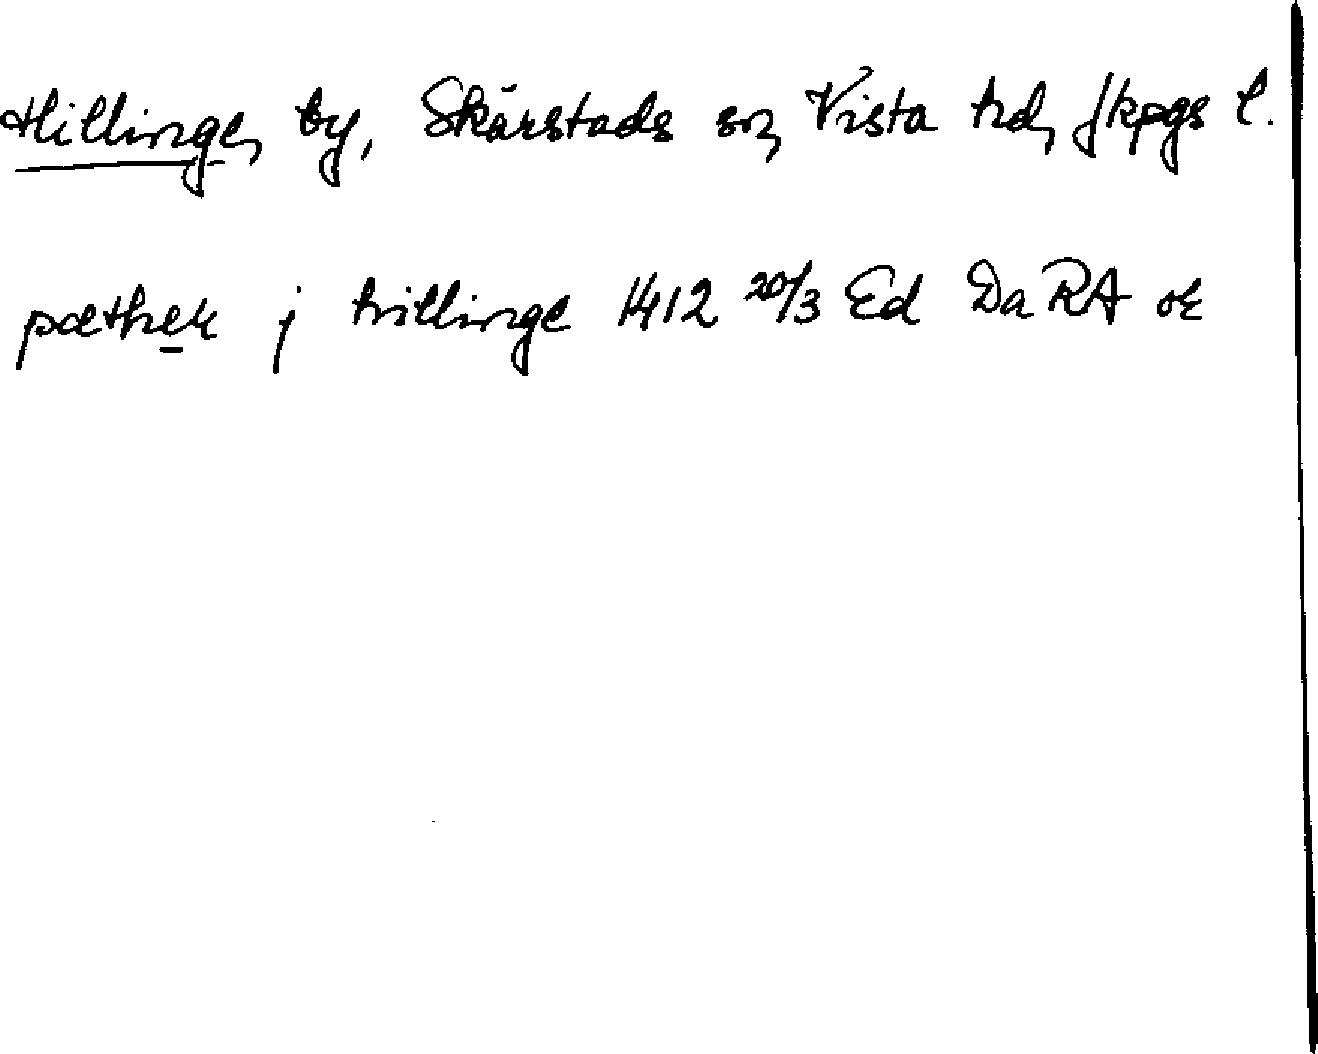 Hillinge, by, Skärstads sn, Vista hd, Jkpgs l.
pæthær j hillinge 1412 20/3 Ed Da RA or